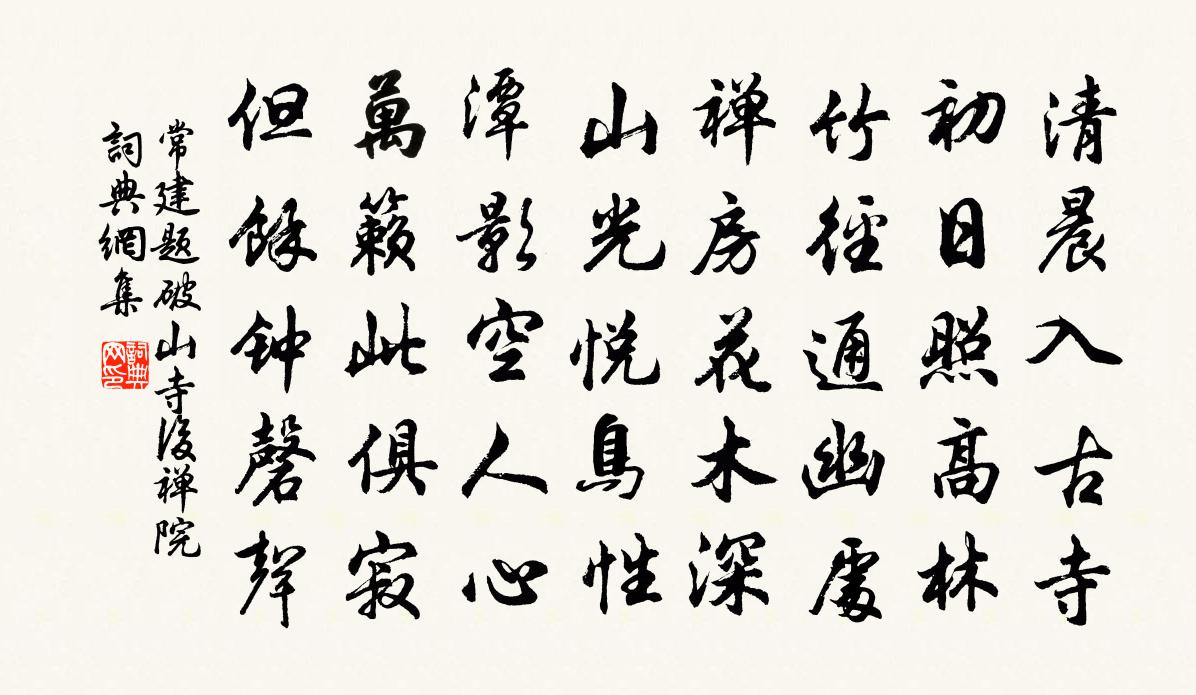 清晨入古寺
初日照高林
竹徑通幽處
禅房花木深
山光悦鳥性
潭影空人心
萬籟此俱寂
但餘钟磬聲
常建题破山寺後禅院
詞典網集
詞典网印